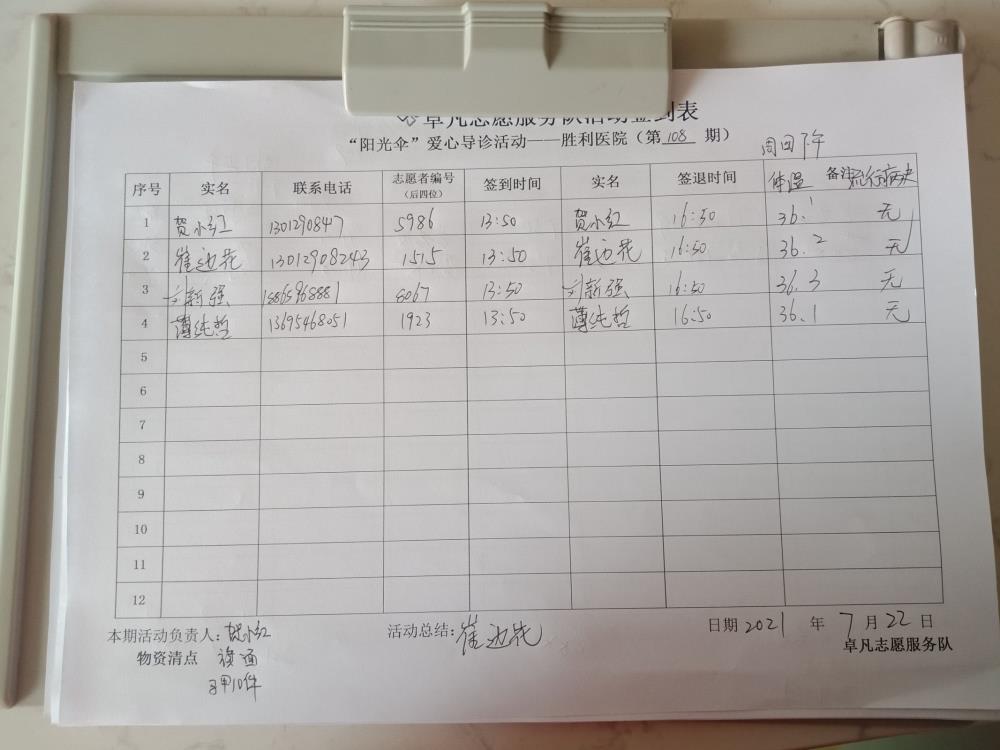 卓凡志愿服务队活动签到表
“阳光伞”爱心导诊活动——胜利医院（第108期）
周四下午
序号 实名 联系电话 志愿者编号（后四位） 签到时间 实名 签退时间 体温 备注 流行病史
1 贺小红 1301290847 5986 13:50 贺小红 16:50 36.1 无
2 崔边花 13012908243 1515 13:50 崔边花 16:50 36.2 无
3 刘新强 18865968881 8067 13:50 刘新强 16:50 36.3 无
4 薄纯哲 13695468051 1923 13:50 薄纯哲 16:50 36.1 无
5
6
7
8
9
10
11
12
本期活动负责人：贺小红 活动总结：崔边花 日期 2021 年 7 月 22 日
物资清点 卓凡志愿服务队
马甲10件